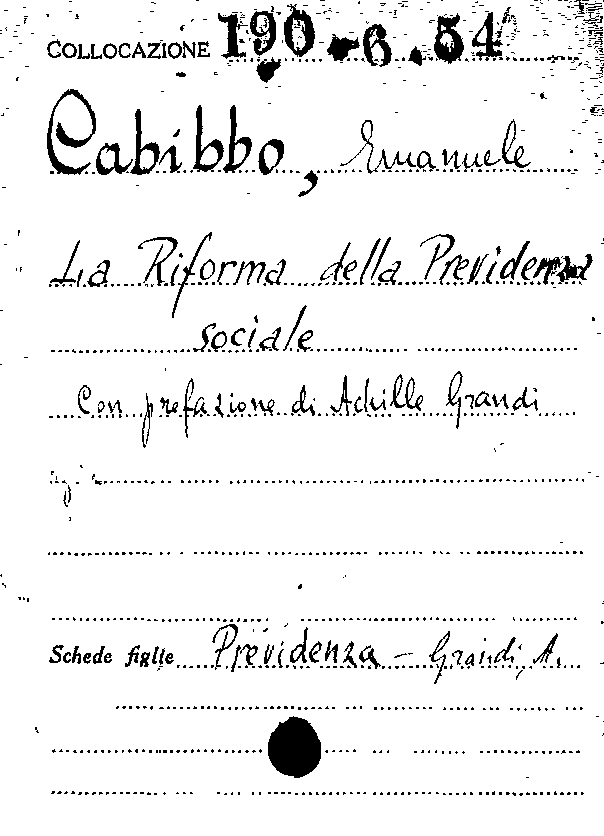 COLLOCAZIONE 190-6.54
Cabibbo, Emanuele
La Riforma della Previdenza
sociale
Con prefazione di Achille Grandi
Schede figlie Previdenza - Grandi, A.